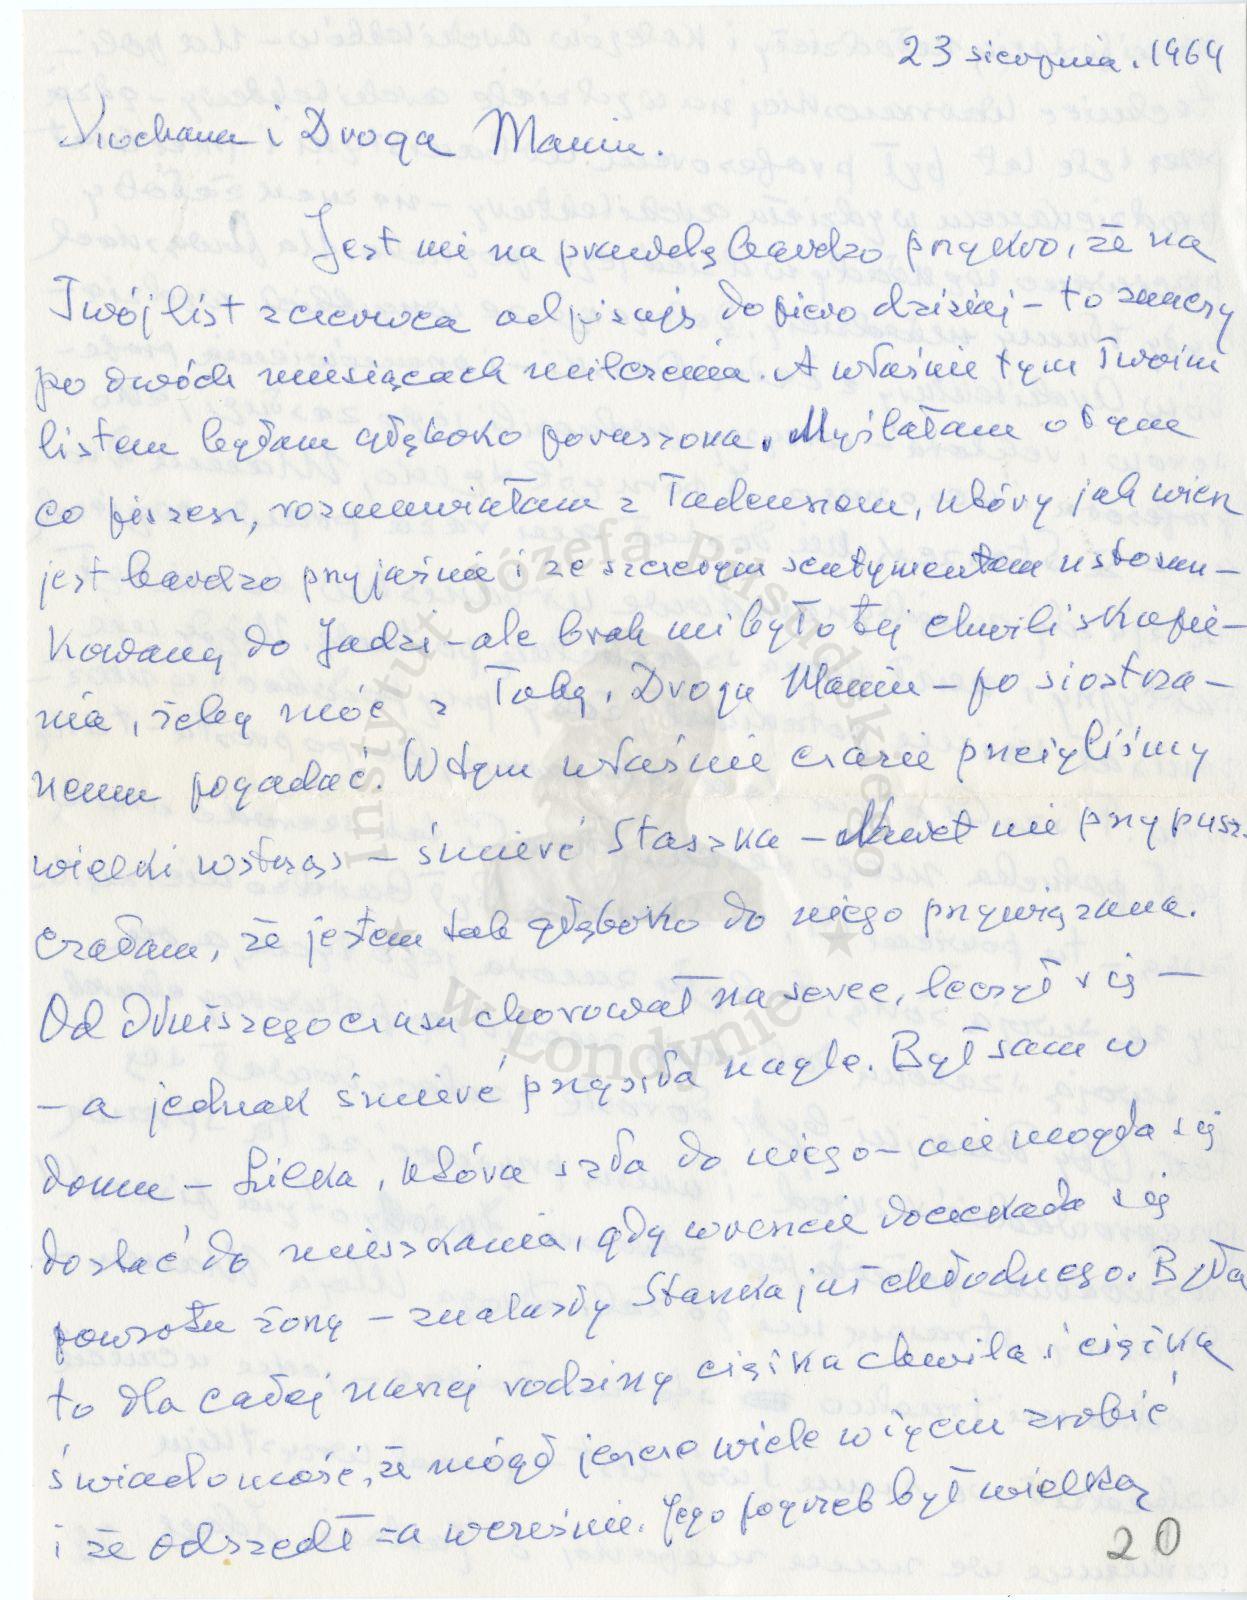 23 sierpnia. 1964
Kochana i Droga Maniu.
Jest mi na prawdę bardzo przykro, że na
Twój list z czerwca odpisuję dopiero dzisiaj – to znaczy
po dwóch miesiącach milczenia. A właśnie tym Twoim
listem byłam głęboko poruszona. Myślałam o tym
co piszesz, rozmawiałam z Tadeuszem, który jak wiesz
jest bardzo przyjaźnie i ze szczerym sentymentem ustosun–
kowany do Jadzi – ale brak mi było tej chwili skupie–
nia, żeby móc z Tobą, Droga Maniu – po siostrza–
nemu pogadać. W tym właśnie czasie przeżyliśmy
wielki wstrząs – śmierć Staszka – Nawet nie przypusz–
czałam, że jestem tak głęboko do niego przywiązana.
Od dłuższego czasu chorował na serce, leczył się –
– a jednak śmierć przyszła nagle. Był sam w
domu – Lilka, która szła do niego – nie mogła się
dostać do mieszkania, gdy wreszcie doczekała się
powrotu żony – znalazły Staszka już chłodnego. Była
to dla całej naszej rodziny ciężka chwila i ciężka
świadomość, że mógł jeszcze wiele w życiu zrobić
i że odszedł za wcześnie. Jego pogrzeb był wielką
20
Instytut Józefa Piłsudskiego
w Londynie